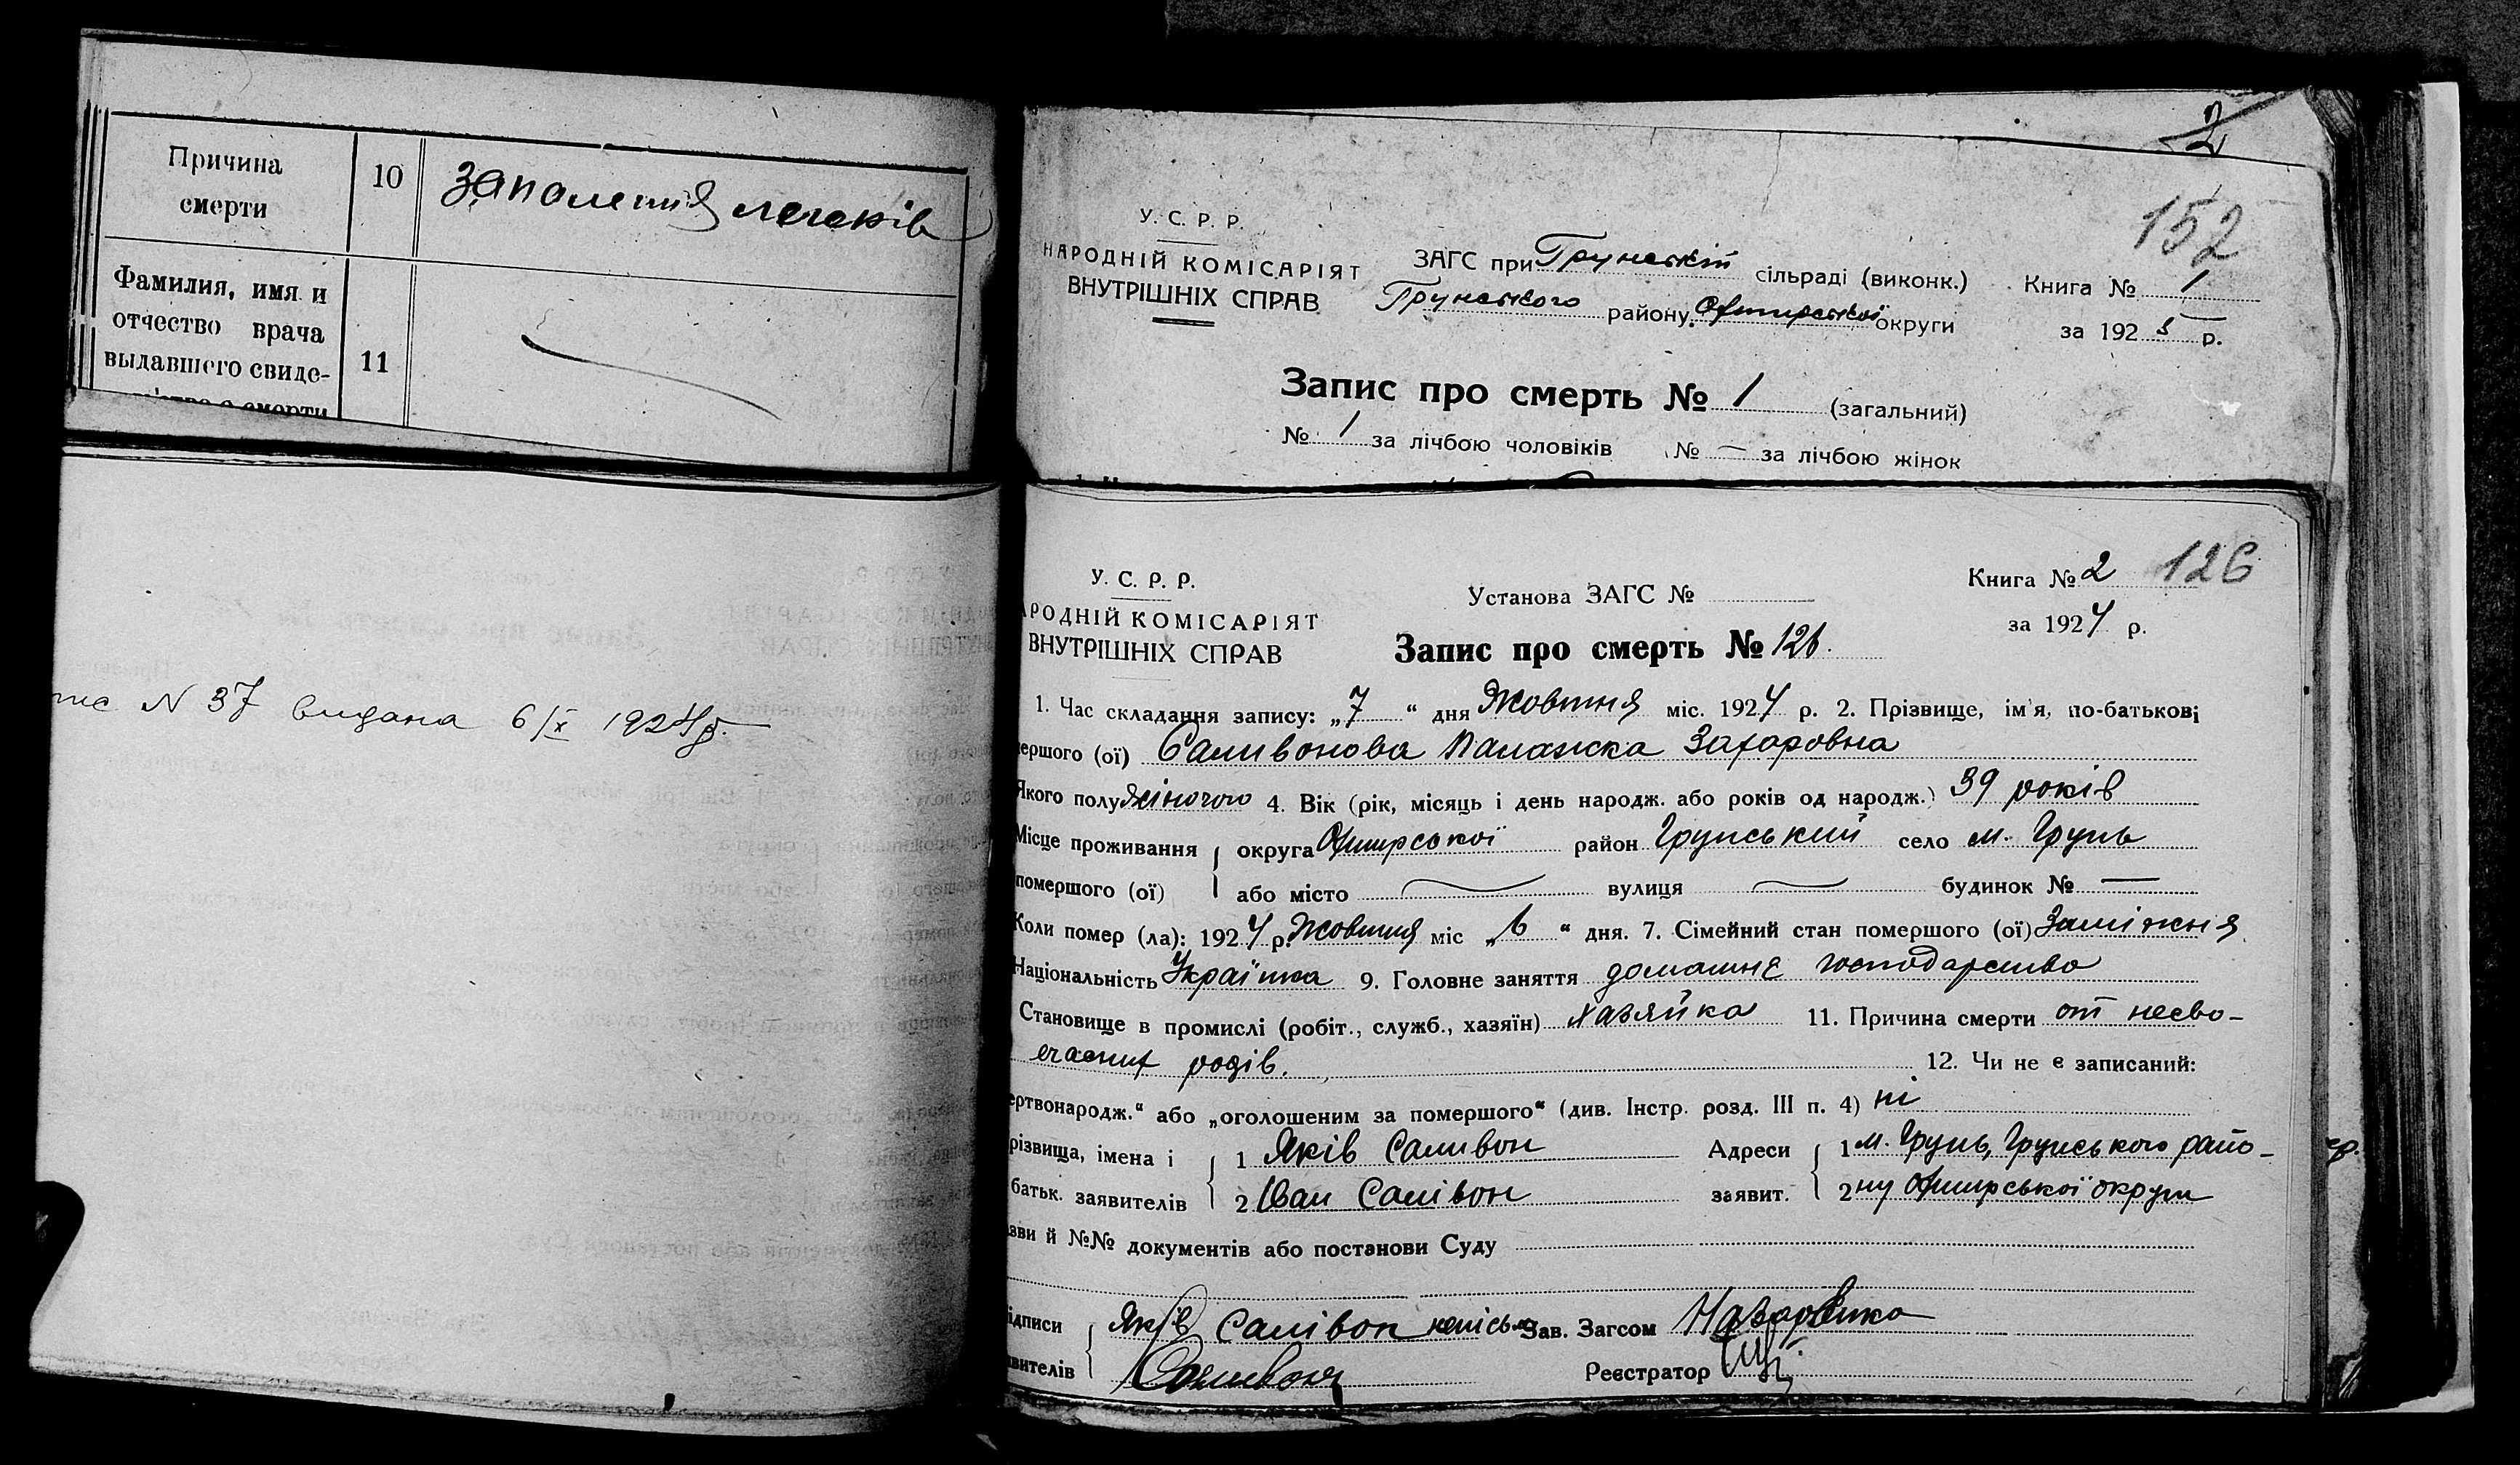 Причина
смерти
10
запалення легенів
Фамилия, имя и
отчество врача
выдавшего свиде-
11
N 37 видана 6/X 1924 р.
2
152
У. С. Р. Р.
НАРОДНІЙ КОМІСАРІЯТ
ВНУТРІШНІХ СПРАВ
ЗАГС при Грунській сільраді (виконк.)
Грунського району Охтирської округи
Книга № 1
за 1925 р.
Запис про смерть № 1 (загальний)
№ 1 за лічбою чоловіків № — за лічбою жінок
У. С. Р. Р.
АРОДНІЙ КОМІСАРІЯТ
ВНУТРІШНІХ СПРАВ
Установа ЗАГС №
Книга № 2 126
за 1924 р.
Запис про смерть № 126.
1. Час складання запису: „7“ дня Жовтня міс. 1924 р. 2. Прізвище, ім'я, по-батькові
ершого (ої) Саливонова Палажка Захаровна
Якого полу жіночого 4. Вік (рік, місяць і день народж. або років од народж.) 39 років
Місце проживання округа Охтирської район Грунський село м. Грунь
помершого (ої) або місто — вулиця — будинок № —
Коли помер (ла): 1924 р. Жовтня міс „6“ дня. 7. Сімейний стан помершого (ої) Заміжня
Національність Українка 9. Головне заняття домашнє господарство
Становище в промислі (робіт., служб., хазяїн) хазяйка 11. Причина смерти от несво-
єчасних родів. 12. Чи не є записаний:
ертвонародж.“ або „оголошеним за помершого“ (див. Інстр. розд. III п. 4) ні
різвища, імена і 1 Яків Саливон Адреси 1 м. Грунь, Грунського райо-
батьк. заявителів 2 Іван Салівон заявит. 2 ну Охтирської округи
зви й №№ документів або постанови Суду
ідписи Яків Салівон Зав. Загсом Назаренко
вителів Саливон Реєстратор